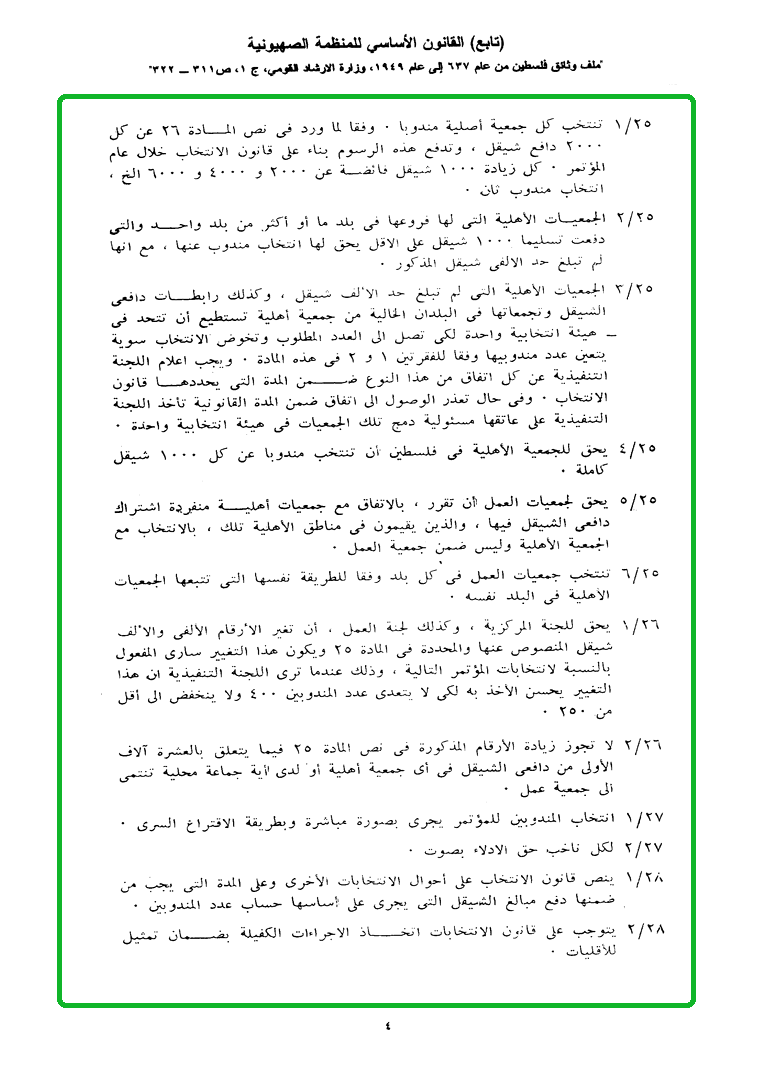 (تابع) القانون الأساسي للمنظمة الصهيونية
"ملف وثائق فلسطين من عام ٦٣٧ إلى عام ١٩٤٩، وزارة الارشاد القومي، ج ١، ص٣١١ ــ ٣٢٢"
١/٢٥ تنتخب كل جمعية أصلية مندوبا ٠ وفقا لما ورد فى نص المـادة ٢٦ عن كل
٢٠٠٠ دافع شيقل ، وتدفع هذه الرسوم بناء على قانون الانتخاب خلال عام
المؤتمر ٠ كل زيادة ١٠٠٠ شيقل فائضـة عن ٢٠٠٠ و ٤٠٠٠ و ٦٠٠٠ الخ ،
انتخاب مندوب ثان ٠
٢/٢٥ الجمعيـات الأهلية التى لها فروعها فى بلد ما أو أكثر من بلد واحـد والتى
دفعت تسليما ١٠٠٠ شيقل على الاقل يحق لها انتخاب مندوب عنها ، مع انها
لم تبلغ حد الالفى شيقل المذكور ٠
٣/٢٥ الجمعيات الأهلية التى لم تبلغ حد الألف شيقل ، وكذلك رابطـات دافعى
الشيقل وتجمعاتها فى البلدان الخالية من جمعية أهلية تستطيع أن تتحد فى
هيئة انتخابية واحدة لكى تصل الى العدد المطلوب وتخوض الانتخاب سوية ــ
يتعين عدد مندوبيها وفقا للفقرتين ١ و ٢ فى هذه المادة ٠ ويجب اعلام اللجنة
التنفيذية عن كل اتفاق من هذا النوع ضــمن المدة التى يحددهـا قانون
الانتخاب ٠ وفى حال تعذر الوصول الى اتفاق ضمن المدة القانونية تأخذ اللجنة
التنفيذية على عاتقها مسئولية دمج تلك الجمعيات فى هيئة انتخابية واحدة ٠
٤/٢٥ يحق للجمعية الأهلية فى فلسطين ان تنتخب مندوبا عن كل ١٠٠٠ شيقل
كاملة ٠
٥/٢٥ يحق لجمعيات العمل أن تقرر ، بالاتفاق مع جمعيات أهليـة منفردة اشتراك
دافعى الشيقل فيها ، والذين يقيمون فى مناطق الأهلية تلك ، بالانتخاب مع
الجمعية الأهلية وليس ضمن جمعية العمل ٠
٦/٢٥ تنتخب جمعيات العمل فى كل بلد وفقا للطريقة نفسها التى تتبعها الجمعيات
الأهلية فى البلد نفسه ٠
١/٢٦ يحق للجنة المركزية ، وكذلك لجنة العمل ، أن تغير الأرقام الألفى والألف
شيقل المنصوص عنها والمحددة فى المادة ٢٥ ويكون هذا التغيير سارى المفعول
بالنسبة لانتخابات المؤتمر التالية ، وذلك عندما ترى اللجنة التنفيذية ان هذا
التغيير يحسن الأخذ به لكى لا يتعدى عدد المندوبين ٤٠٠ ولا ينخفض الى أقل
من ٢٥٠ ٠
٢/٢٦ لا تجوز زيادة الأرقام المذكورة فى نص المادة ٢٥ فيما يتعلق بالعشرة آلاف
الأولى من دافعى الشيقل فى أى جمعية أهلية أو لدى أية جماعة محلية تنتمى
الى جمعية عمل ٠
١/٢٧ انتخاب المندوبين للمؤتمر يجرى بصورة مباشرة وبطريقة الاقتراع السرى ٠
٢/٢٧ لكل ناخب حق الادلاء بصوت ٠
١/٢٨ ينص قانون الانتخاب على أحوال الانتخابات الأخرى وعلى المدة التى يجب من
ضمنها دفع مبالغ الشيقل التى يجرى على أساسها حساب عدد المندوبين ٠
٢/٢٨ يتوجب على قانون الانتخابات اتخـاذ الاجراءات الكفيلة بضـمان تمثيل
للأقليات ٠
٤